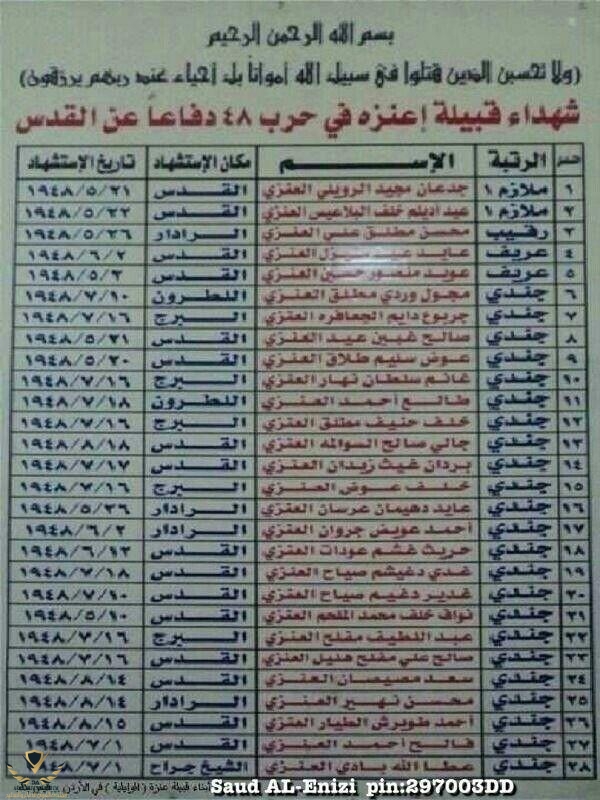 بسم الله الرحمن الرحيم
(ولا تحسبن الذين قتلوا في سبيل الله أمواتاً بل أحياء عند ربهم يرزقون)
شهداء قبيلة إعنزه في حرب ٤٨ دفاعاً عن القدس
الرتبة الإســـم مكان الإستشهاد تاريخ الإستشهاد
١ ملازم ١ جدعان مجيد الرويلي العنزي القدس ١٩٤٨/٥/٢١
٢ ملازم ١ عيد أديلم خلف البلاعيس العنزي القدس ١٩٤٨/٥/٢٢
٣ رقيب محسن مطلق علي العنزي الرادار ١٩٤٨/٥/٢٦
٤ عريف عايد العنزي القدس ١٩٤٨/٦/٢
٥ عريف عويد منصور حسين العنزي القدس ١٩٤٨/٥/٢
٦ جندي مجول وردي مطلق العنزي اللطرون ١٩٤٨/٧/١٠
٧ جندي جربوع دايم الجعافره العنزي البرج ١٩٤٨/٧/١٦
٨ جندي صالح غبين عيد العنزي القدس ١٩٤٨/٥/٢١
٩ جندي عوض سليم طلاق العنزي القدس ١٩٤٨/٥/٢٠
١٠ جندي غانم سلطان نهار العنزي البرج ١٩٤٨/٧/١٦
١١ جندي طالع أحمد العنزي اللطرون ١٩٤٨/٧/١٨
١٢ جندي خلف حنيف مطلق العنزي البرج ١٩٤٨/٧/١٦
١٣ جندي جالي صالح السوالمه العنزي القدس ١٩٤٨/٨/١٨
١٤ جندي بردان غيث زيدان العنزي القدس ١٩٤٨/٧/١٧
١٥ جندي خلف عوض العنزي البرج ١٩٤٨/٧/١٦
١٦ جندي عايد دهيمان عرسان العنزي الرادار ١٩٤٨/٥/٢٦
١٧ جندي أحمد عويض جروان العنزي الرادار ١٩٤٨/٦/٢
١٨ جندي حريث غشم عودات العنزي القدس ١٩٤٨/٦/١٢
١٩ جندي غدي دغيشم صياح العنزي القدس ١٩٤٨/٧/١٨
٢٠ جندي غدير دغيم صياح العنزي القدس ١٩٤٨/٧/١٠
٢١ جندي نواف خلف محمد الملحم العنزي القدس ١٩٤٨/٥/١٠
٢٢ جندي عبد اللطيف مفلح العنزي البرج ١٩٤٨/٧/١٦
٢٣ جندي صالح علي مفلح هليل العنزي القدس ١٩٤٨/٧/١٦
٢٤ جندي سعد مصيصان العنزي القدس ١٩٤٨/٨/١٤
٢٥ جندي محسن نهير العنزي الرادار ١٩٤٨/٨/١٤
٢٦ جندي أحمد طويرش الطيار العنزي القدس ١٩٤٨/٨/١٥
٢٧ جندي فالح أحمد العنزي القدس ١٩٤٨/٧/١
٢٨ جندي عطا الله بادي العنزي الشيخ جراح ١٩٤٨/٧/١
أبناء قبيلة عنزة في الأردن
Saud AL-Enizi pin:297003DD